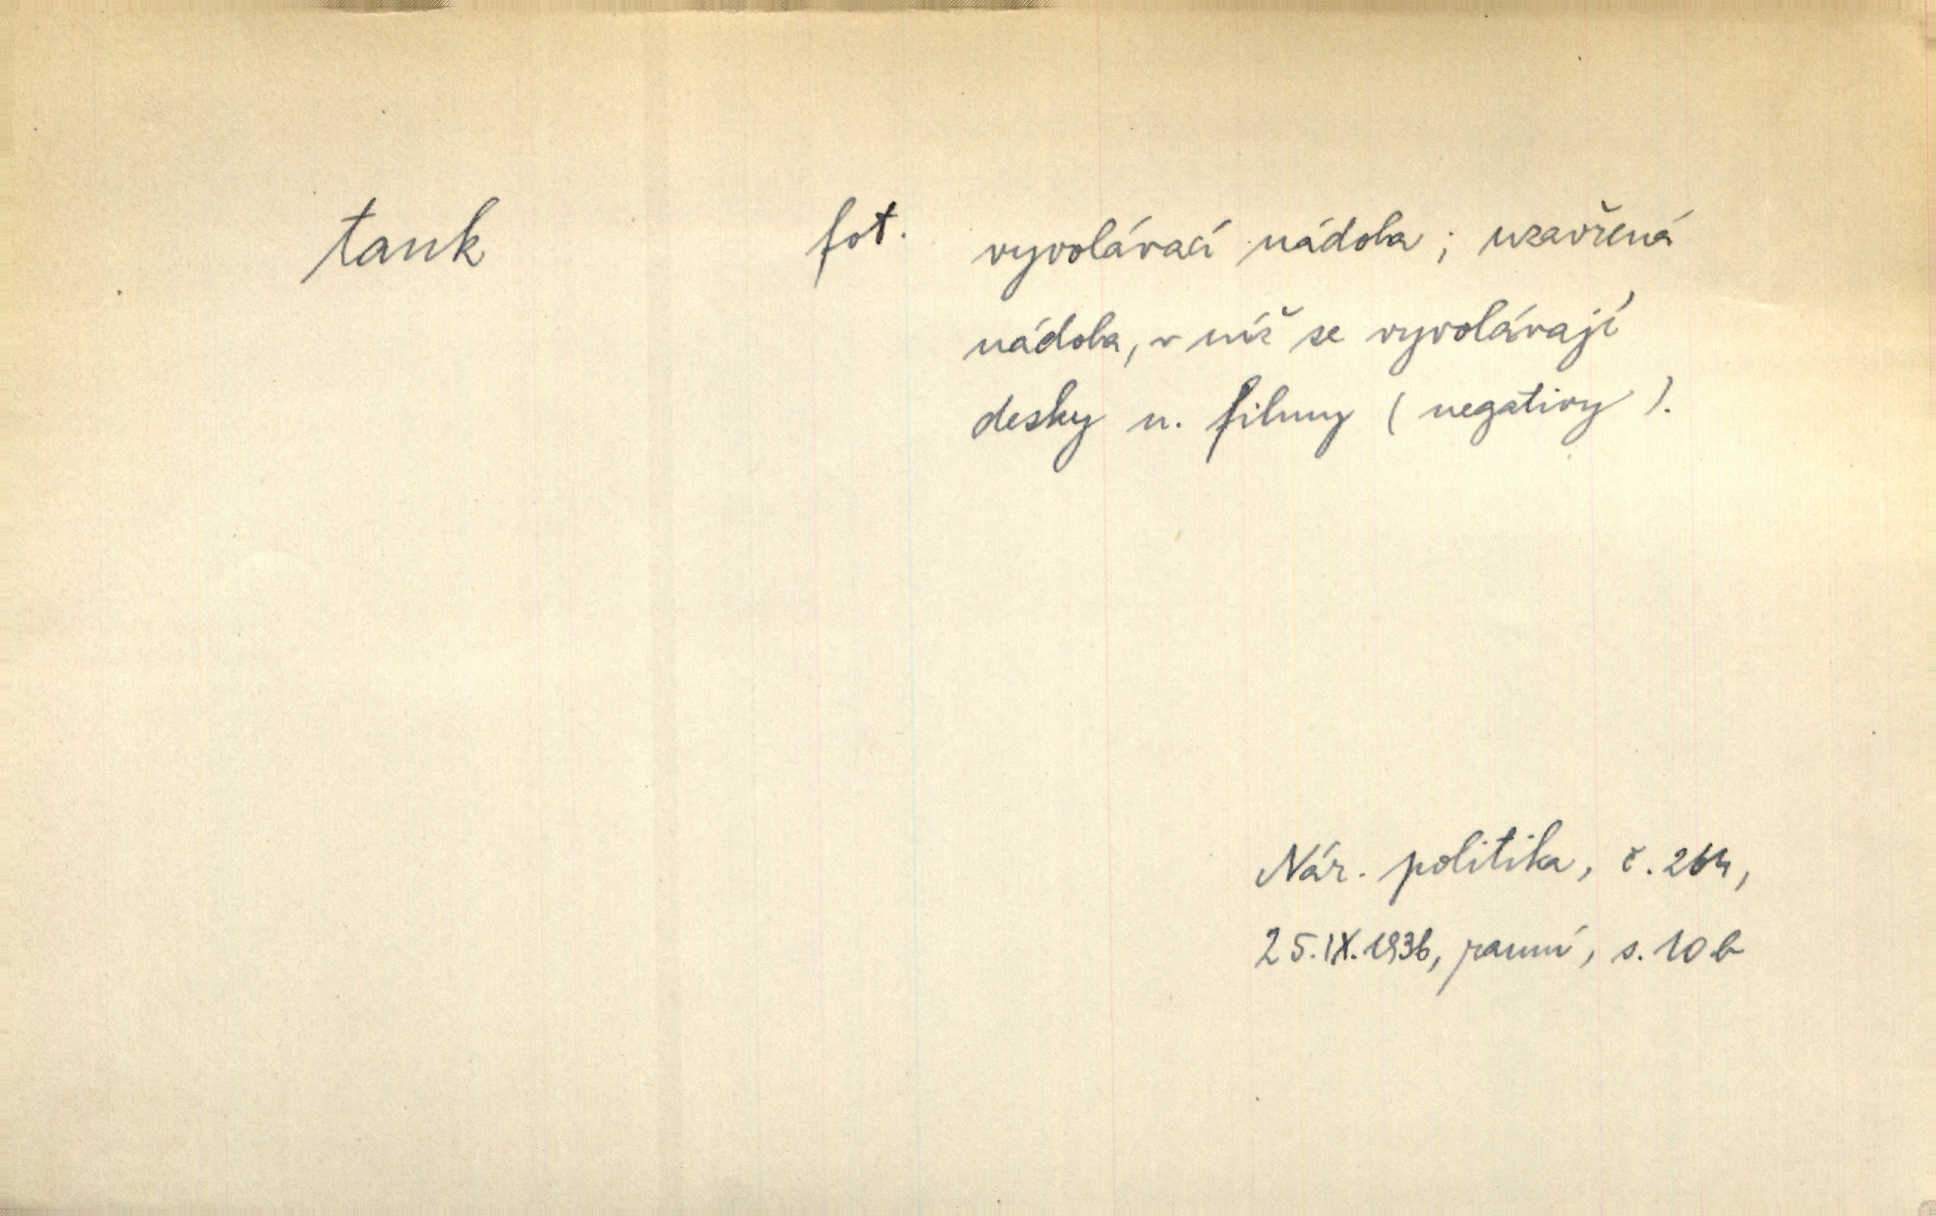 tank fot. vyvolávací nádoba; uzavřená
nádoba, v níž se vyvolávají
desky n. filmy (negativy).
Nár. politika, č. 264,
25.IX.1936, ranní, s. 10b